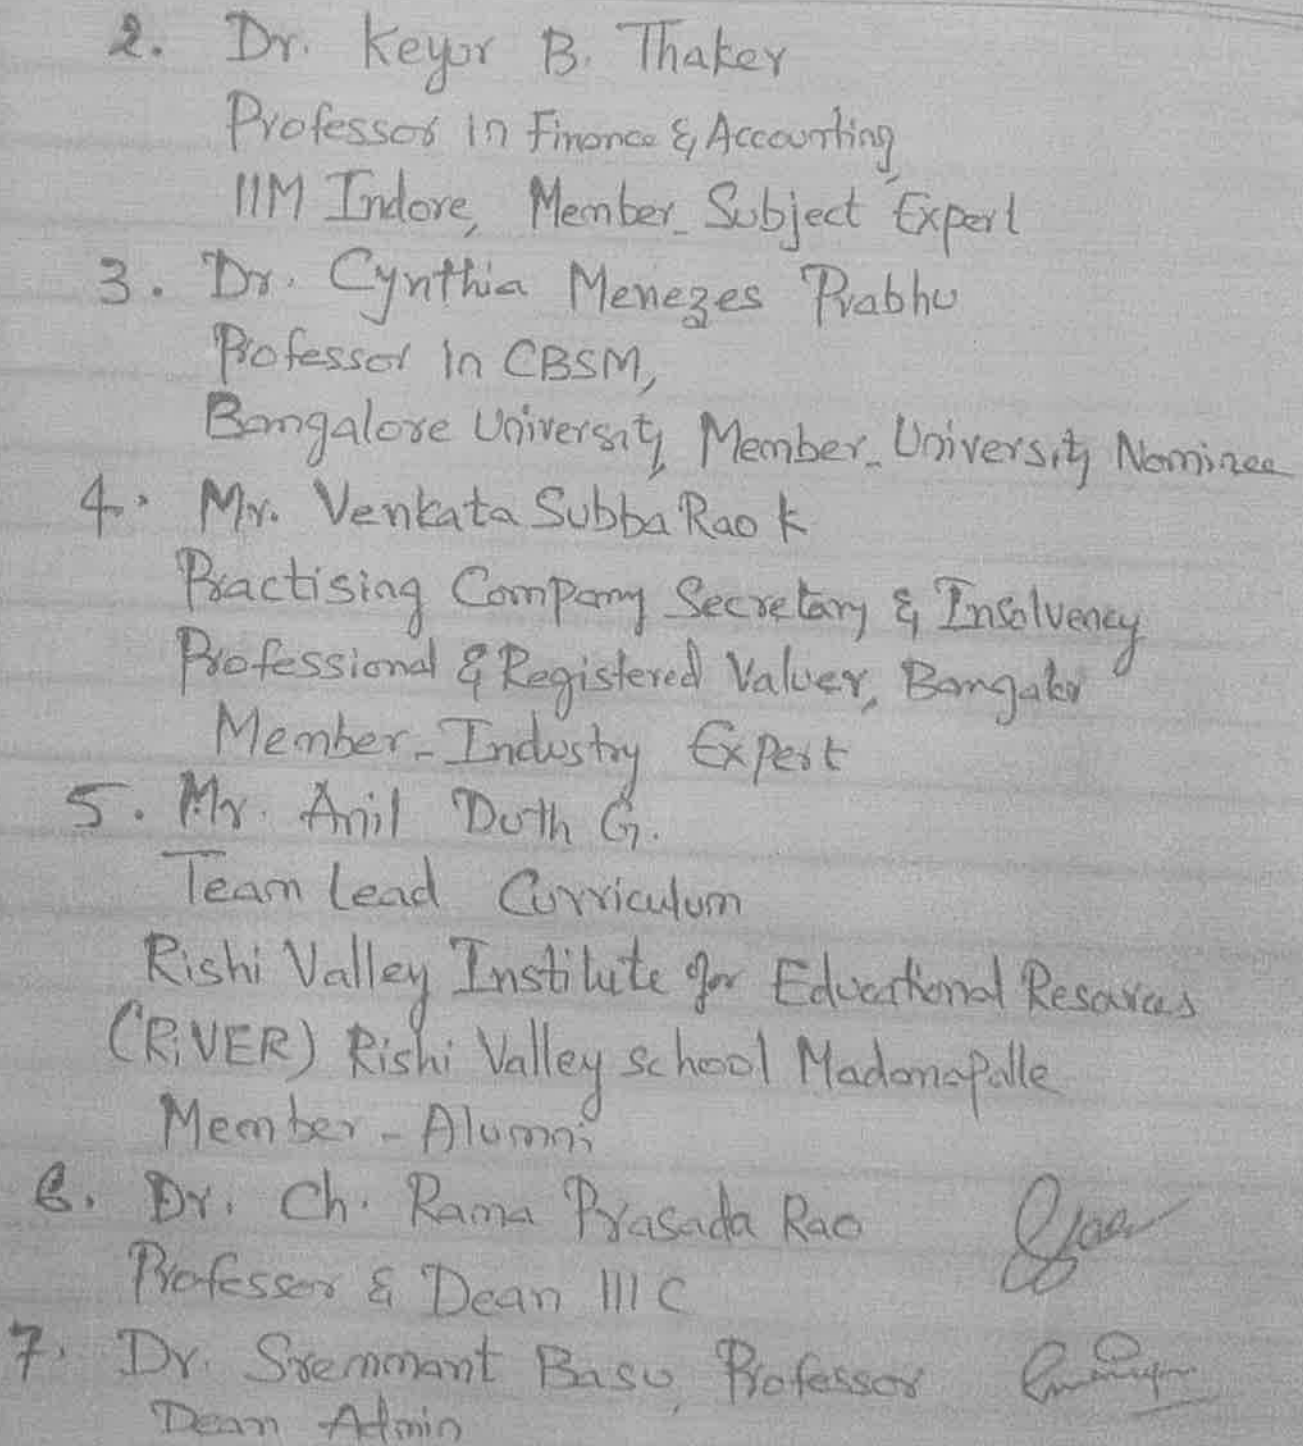 2. Dr. Keyur B. Thaker
Professor in Finance & Accounting,
IIM Indore, Member - Subject Expert
3. Dr. Cynthia Menezes Prabhu
Professor in CBSM,
Bangalore University, Member - University Nominee
4. Mr. Venkata Subba Rao K
Practising Company Secretary & Insolvency
Professional & Registered Valuer, Bangalor
Member - Industry Expert
5. Mr. Anil Duth G.
Team Lead Curriculum
Rishi Valley Institute for Educational Resources
(RiVER) Rishi Valley school Madanapalle
Member - Alumni
6. Dr. Ch. Rama Prasada Rao
Professor & Dean IIIC
7. Dr. Sremmant Basu, Professor
Dean Admin